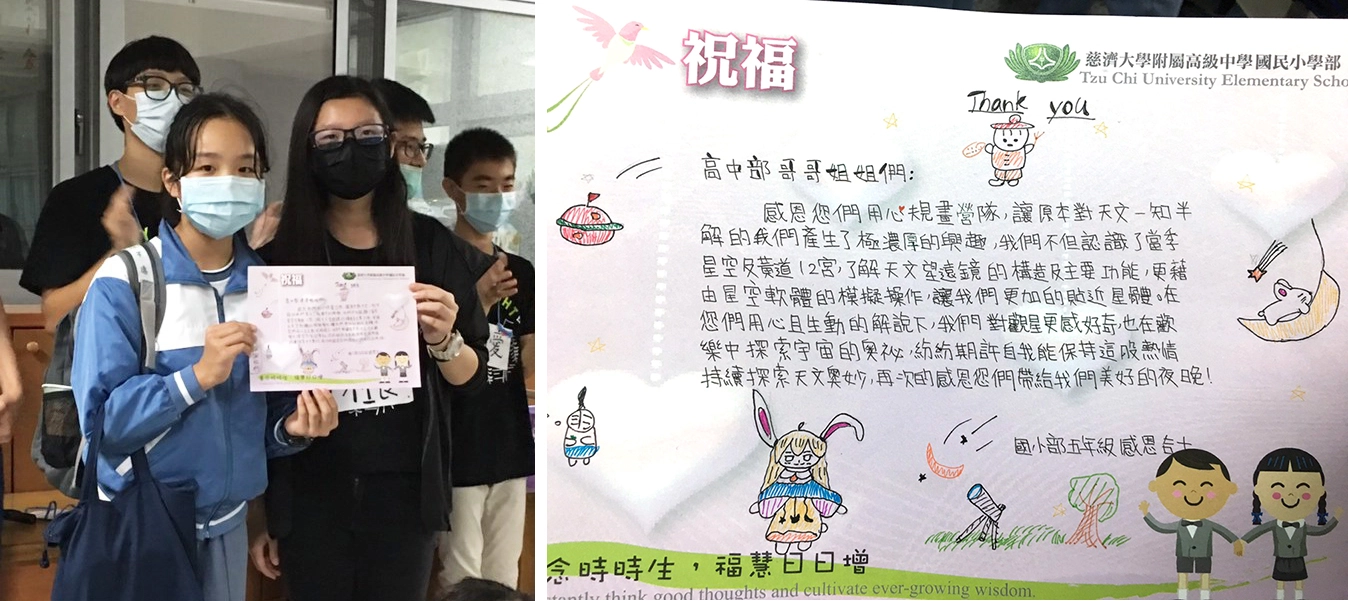 祝福
慈濟大學附屬高級中學國民小學部
Tzu Chi University Elementary Scho
Thank you
高中部哥哥姐姐們:
感恩您們用心規畫營隊,讓原本對天文一知半
解的我們產生了極濃厚的興趣,我們不但認識了當季
星空及黃道12宮,了解天文望遠鏡的構造及主要功能,更藉
由星空軟體的模擬操作,讓我們更加的貼近星體。在
您們用心且生動的解說下,我們對觀星更感好奇,也在歡
樂中探索宇宙的奧祕,紛紛期許自我能保持這股熱情
持續探索天文奧妙,再次的感恩您們帶給我們美好的夜晚!
國小部五年級感恩合十
念時時生,福慧日日增
stantly think good thoughts and cultivate ever-growing wisdom.
祝福
Thank you
愛